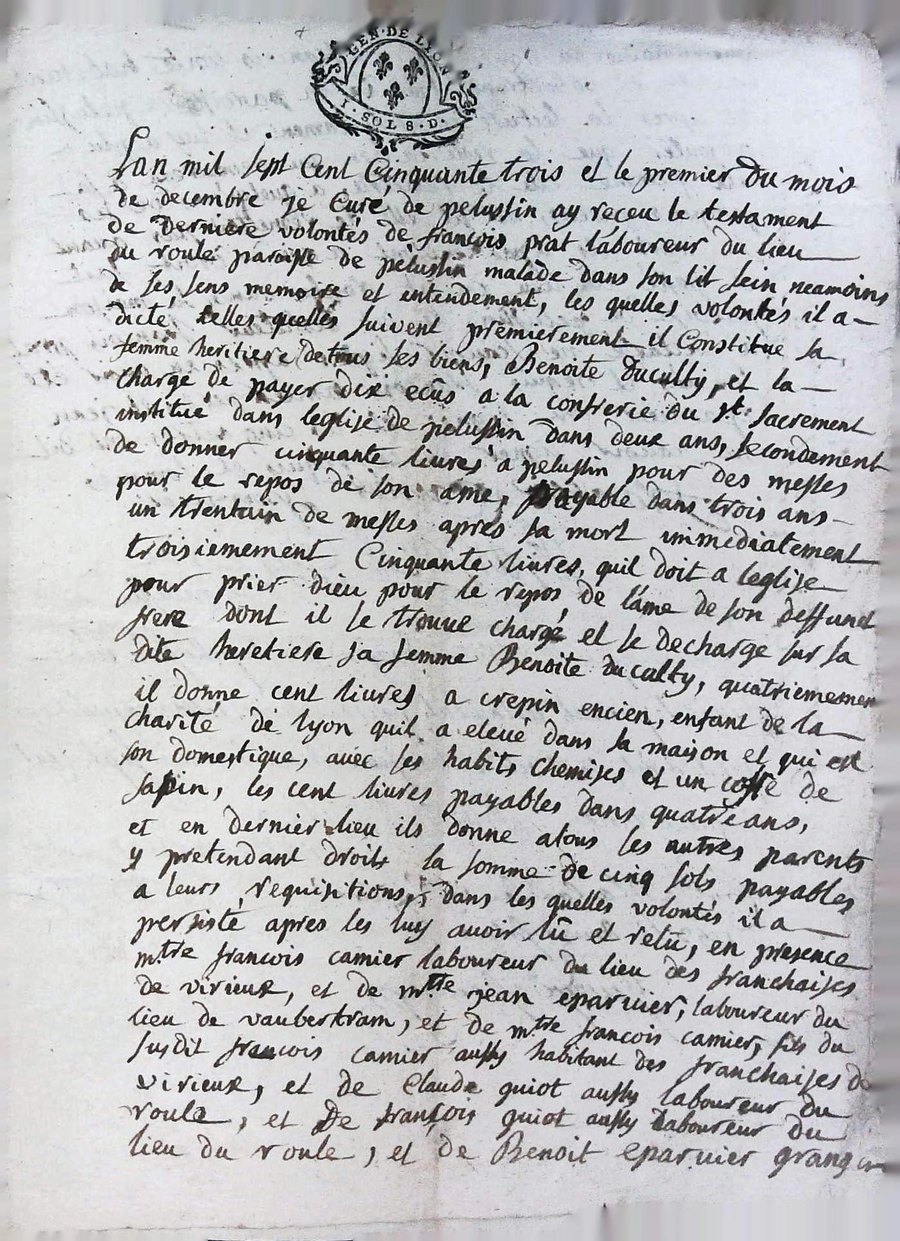 GEN · DE LYON
I · SOL 8 · D ·
Lan mil sept Cent Cinquante trois et le premier du mois
de decembre je Curé de pelussin ay receu le testament
de derniere volontés de françois prat laboureur du lieu
du roule paroisse de pelussin malade dans son lit sein neamoins
de ses sens memoire et entendement, les quelles volontés il a
dicté telles quelles suivent premierement il Constitue sa
femme heritiere de tous ses biens, Benoite duculty, et la
charge de payer dix ecus a la confrerie du st. sacrement
institué dans leglise de pelussin dans deux ans, secondement
de donner cinquante livres a pelussin pour des messes
pour le repos de son ame, payable dans trois ans
un trentain de messes apres sa mort immediatement
troisiemement Cinquante livres, quil doit a leglise
pour prier dieu pour le repos de l'ame de son deffunct
frere dont il se trouve chargé et se decharge sur sa
dite heretiere sa femme Benoite duculty, quatriemement
il donne cent livres a crepin encien, enfant de la
charité de lyon quil a elevé dans sa maison et qui est
son domestique, avec ses habits chemises et un coffre de
sapin, les cent livres payables dans quatre ans,
et en dernier lieu ils donne atous les autres parents
y pretendant droits la somme de cinq sols payables
a leurs requisitions, dans les quelles volontés il a
persisté apres les luy avoir lû et relû, en presence
m.tre francois camier laboureur du lieu des franchaises
de virieux, et de m.tre jean eparvier, laboureur du
lieu de vaubertram, et de m.tre françois camier, fils du
susdit francois camier aussy habitant des franchaises de
virieux, et de Claude guiot aussy laboureur du
roule, et de françois guiot aussy laboureur du
lieu du roule, et de Benoit eparvier granger